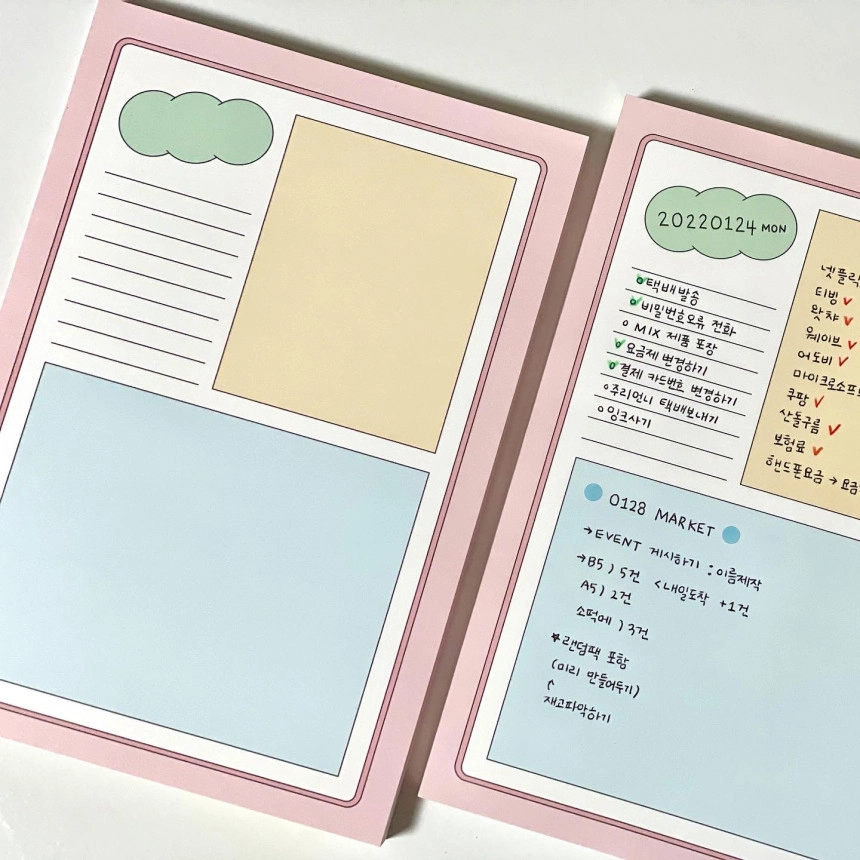 20220124 MON
택배발송
비밀번호오류 전화
MIX 제품 포장
요금제 변경하기
결제 카드번호 변경하기
주리언니 택배보내기
잉크사기
넷플릭
티빙 ✓
왓챠 ✓
웨이브 ✓
어도비 ✓
마이크로소프
쿠팡 ✓
산돌구름 ✓
보험료 ✓
핸드폰요금 → 요금
0128 MARKET
→ EVENT 게시하기 : 이름제작
→ B5 ) 5건 < 내일도착 +1건
A5 ) 2건
소떡메 ) 3건
★ 랜덤팩 포함
(미리 만들어두기)
↑
재고파악하기